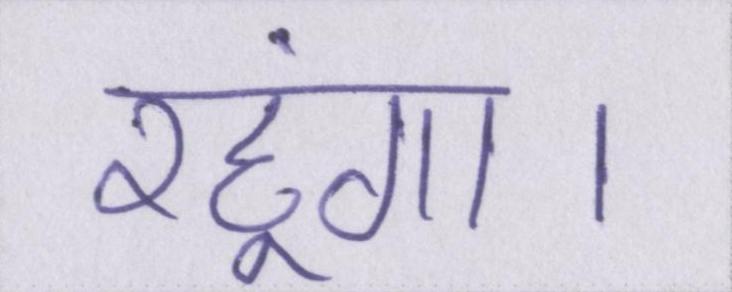 रहूंगा।